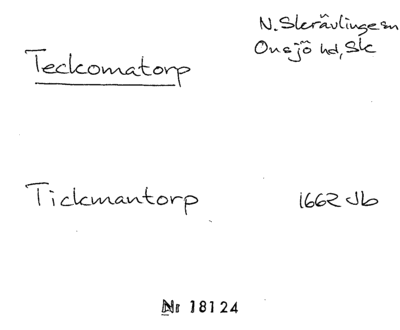 N. Skrävlinge sn
Onsjö hd, Sk
Teckomatorp
Tickmantorp 1662 Jb
Nr 18124